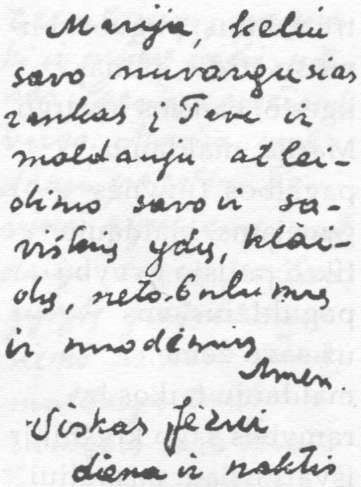 Marija, keliu
savo nuvargusias
rankas į Tave ir
maldauju atlei-
dimo savo ir sa-
viškių ydų, klai-
dų, netobulumų
ir nuodėmių
Amen.
Viskas Jėzui
diena ir naktis